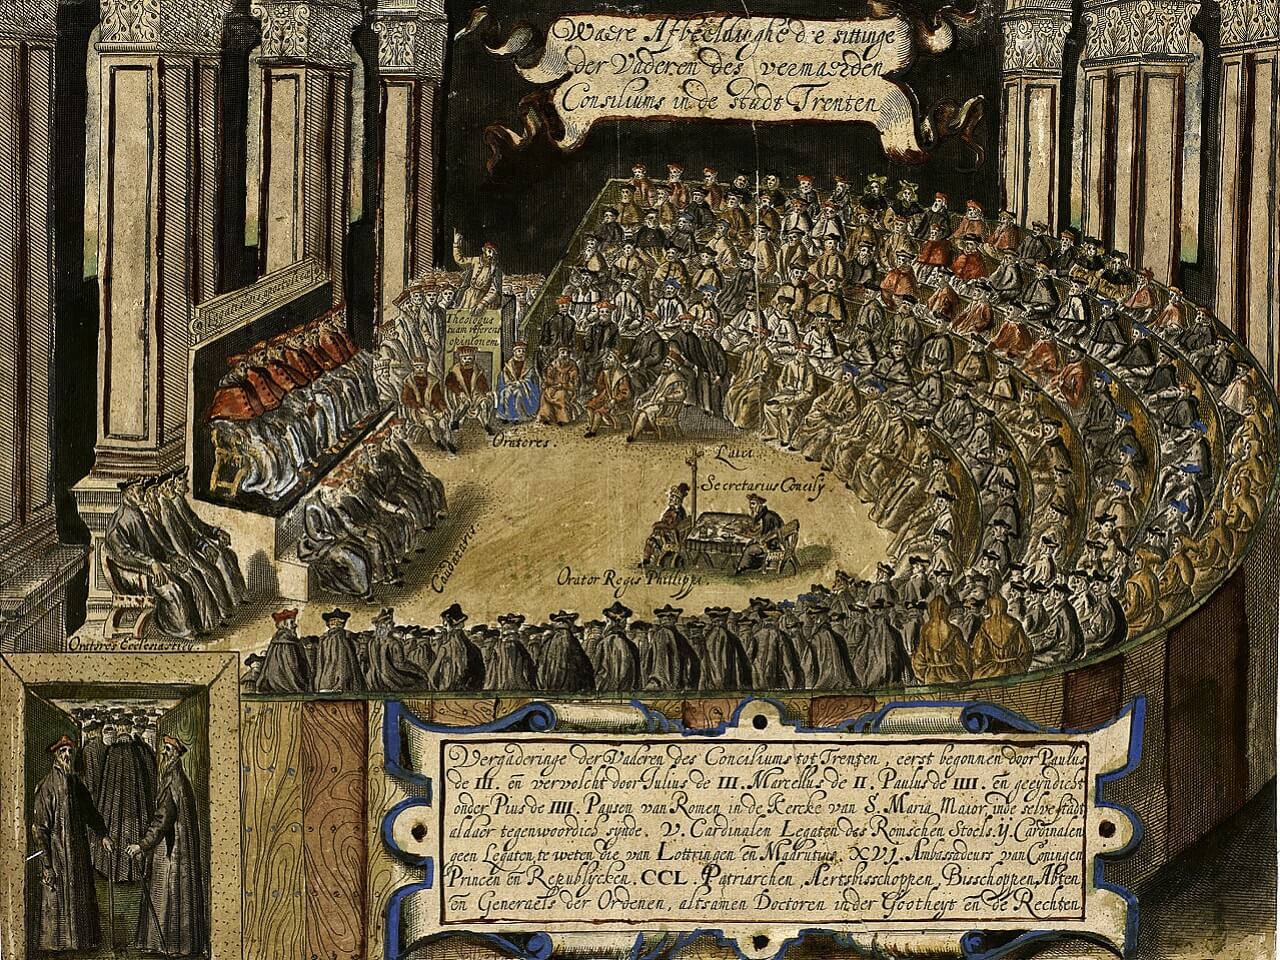 Waere Afbeeldighe die sittinge
der Vaderen des vermaerden
Consiliums in de stadt Trenten
Theologus
suam referens
opinionem
Oratores
Secretarius Concilij
Orator Regis Phillippi
Caudatarij
Oratores Ecclesiastici
Vergaderinge der Vaderen des Conciliums tot Trenten, eerst begonnen door Paulus
de III. en vervolcht door Julius de III. Marcellus de II. Paulus de IIII. en geeyndicht
onder Pius de IIII. Pausen van Romen in de Kercke van S. Maria Maior inde selve stadt
aldaer tegenwoordich synde. V. Cardinalen Legaten des Romschen Stoels. ij. Cardinalen
geen Legaten, te weten die van Lottringen en Madrutius, XVI. Ambassadeurs van Coningen
Princen en Republycken. CCL. Patriarchen, Aertsbisschoppen, Bisschoppen, Abten
en Generaels der Ordenen, altsamen Doctoren inder Gootheyt en de Rechten.